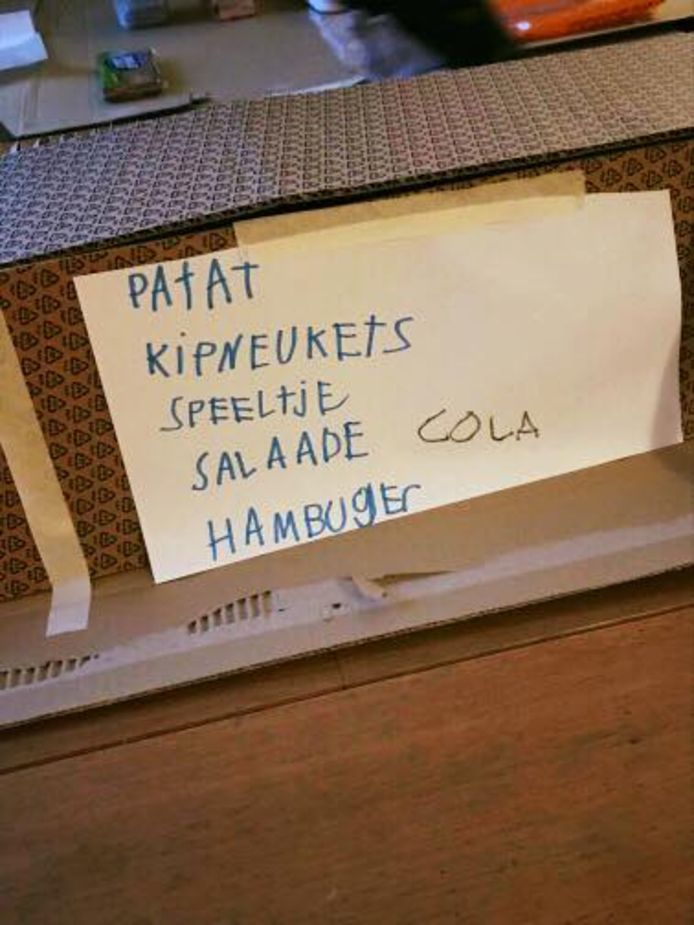 PATAT
KIPNEUKETS
SPEELTJE
SALAADE COLA
HAMBUgEr